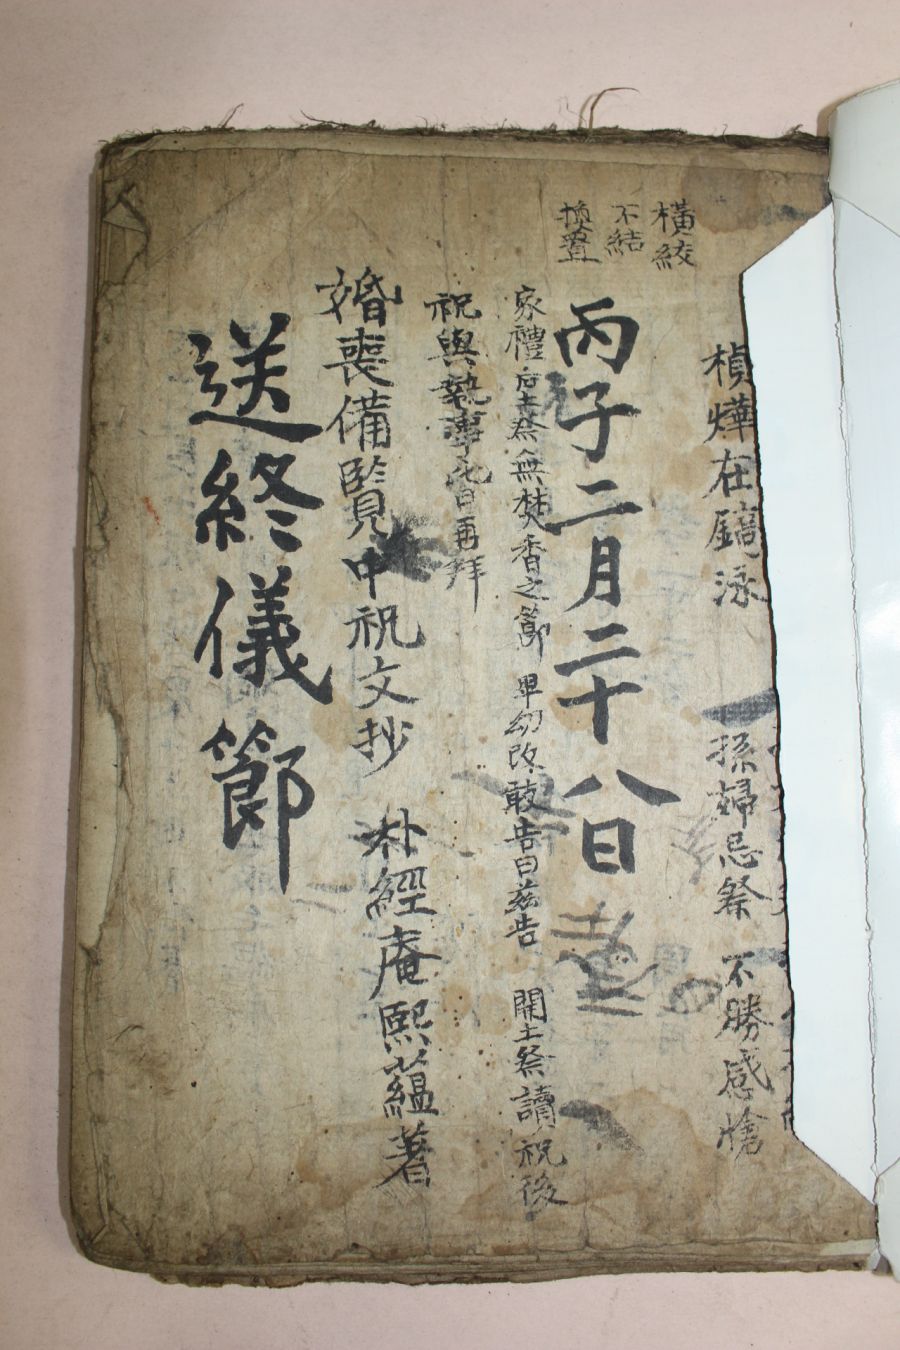 橫絞
不結
換置
楨燁在鏡泳
孫婦忌祭 不勝感愴
丙子二月二十八日
家禮后土祭無焚香之節 卑幼改敢告曰玆告 開土祭讀祝後
祝與執事 再拜
婚喪備覽中祝文抄 朴經庵熙蘊著
送終儀節